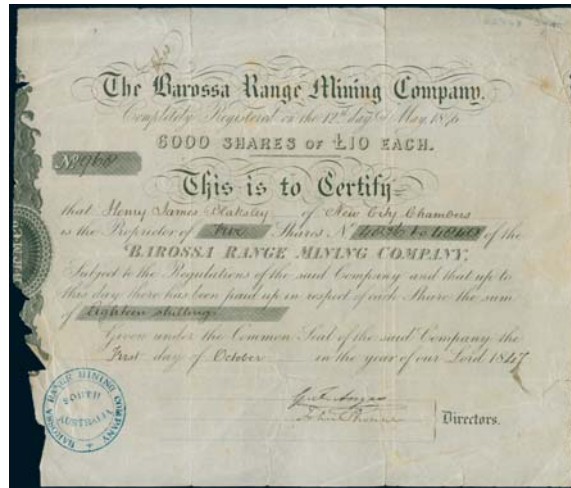 The Barossa Range Mining Company.
Completely Registered on the 12th day of May 1846
6000 SHARES OF £10 EACH.
No 968
This is to Certify
that Henry James Blaksley of New City Chambers
is the Proprietor of five Shares No 4836 to 4840 of the
BAROSSA RANGE MINING COMPANY,
Subject to the Regulations of the said Company and that up to
this day there has been paid up in respect of each Share the sum
of Eighteen shillings
Given under the Common Seal of the said Company the
First day of October in the year of our Lord 1847
BAROSSA RANGE MINING COMPANY
SOUTH
AUSTRALIA
Directors.